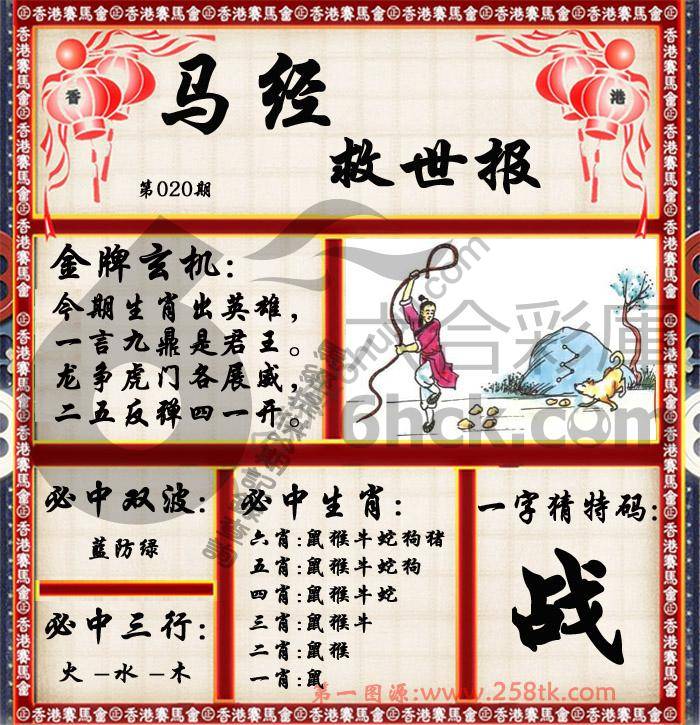 香港賽馬會
香
港
马经
救世报
第020期
金牌玄机:
今期生肖出英雄，
一言九鼎是君王。
龙争虎门各展威，
二五反弹四一开。
六合彩庫
6hck.com
必中双波:
蓝防绿
必中三行:
火-水-木
必中生肖:
六肖:鼠猴牛蛇狗猪
五肖:鼠猴牛蛇狗
四肖:鼠猴牛蛇
三肖:鼠猴牛
二肖:鼠猴
一肖:鼠
一字猜特码:
战
第一图源:www.258tk.com